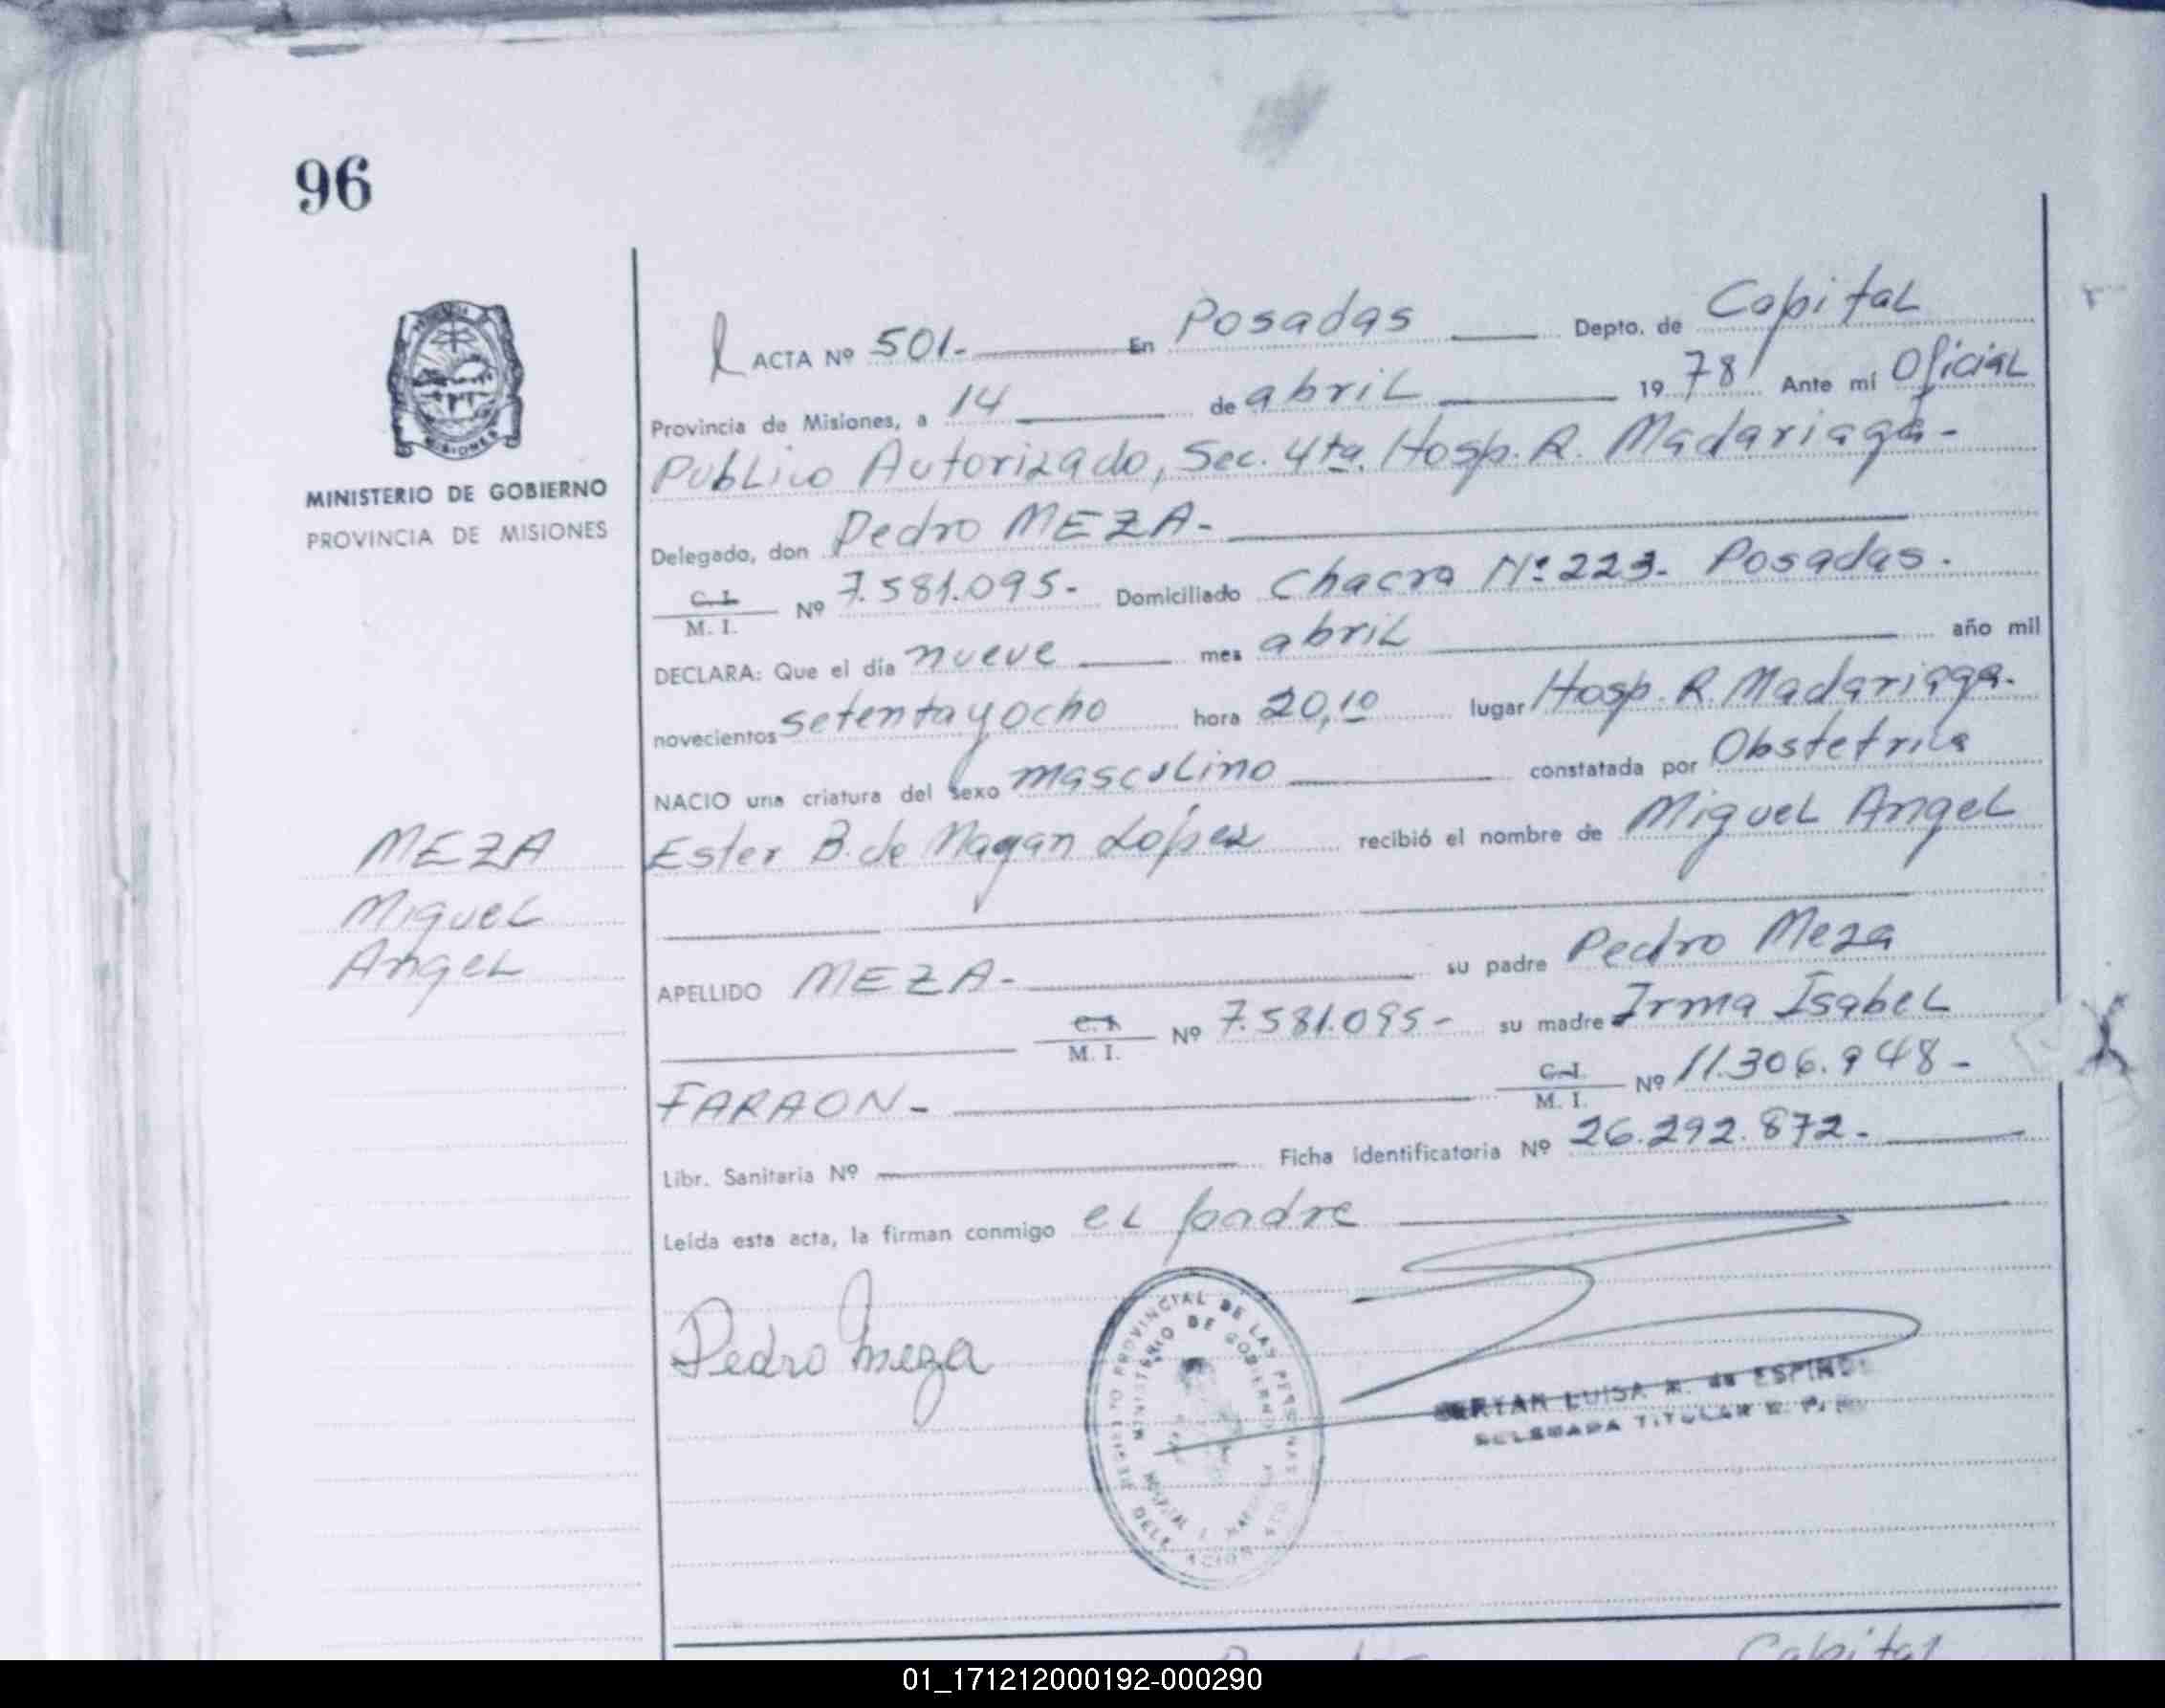 96
MINISTERIO DE GOBIERNO
PROVINCIA DE MISIONES
MEZA
Miguel
Angel
ACTA Nº 501.- En Posadas Depto. de Capital
Provincia de Misiones, a 14 de abril 1978 Ante mí Oficial
Publico Autorizado, Sec. 4ta. Hosp. R. Madariaga-
Delegado, don Pedro MEZA-
C. I. / M. I. Nº 7.581.095- Domiciliado Chacra Nº 223- Posadas.
DECLARA: Que el día nueve mes abril año mil
novecientos setenta y ocho hora 20,10 lugar Hosp. R. Madariaga.
NACIO una criatura del sexo masculino constatada por Obstetrica
Ester B. de Magan López recibió el nombre de Miguel Angel
APELLIDO MEZA- su padre Pedro Meza
C. I. / M. I. Nº 7.581.095- su madre Irma Isabel
FARAON- C. I. / M. I. Nº 11.306.948-
Libr. Sanitaria Nº Ficha Identificatoria Nº 26.292.872.-
Leída esta acta, la firman conmigo el padre
Pedro Meza
PROVINCIAL DE LAS PERSONAS
MINISTERIO DE GOBIERNO
LUISA de
TITULAR
Capital
01_171212000192-000290